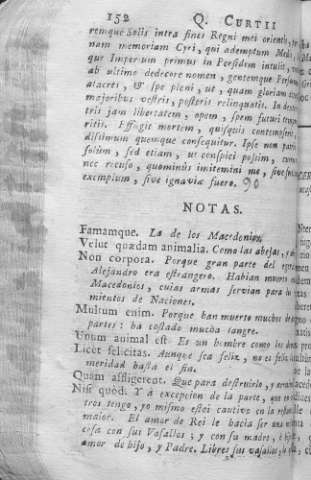 152 Q. CURTII
remque Solis intra fines Regni mei orientis,
nam memoriam Cyri, qui ademptum Medis
que Imperium primus in Persidem intulit,
ab ultimo dedecore nomen, gentemque Persarum
alacres, & spe pleni, ut, quam gloriam
majoribus vestris, posteris relinquatis. In dex-
tris jam libertatem, opem, spem futuri tempo
ritis. Effugit mortem, quisquis contemserit:
dissimum quemque consequitur. Ipse non patrio
solùm, sed etiam, ut conspici possim, curru
nec recuso, quominùs imitemini me, sive
exemplum, sive ignaviæ fuero. 90
NOTAS.
Famamque. La de los Macedonios.
Velut quædam animalia. Como las abejas, y
Non corpora. Porque gran parte del
Alejandro era estrangero. Habian muerto
Macedonios, cuias armas servian para
mientos de Naciones.
Multum enim. Porque han muerto muchos de
partes: ha costado mucha sangre.
Unum animal est. Es un hombre como los
Licèt felicitas. Aunque sea feliz, no es felic
meridad hasta el fin.
Quàm affligerent. Que para destruirlo, y
Nisi quòd. Y à excepcion de la parte, que
tros tengo, yo mismo estoi cautivo en la
maior. El amor de Rei le hacia ser una
cosa con sus Vasallos; y con su madre, è
amor de hijo, y Padre. Libres sus vasallos,